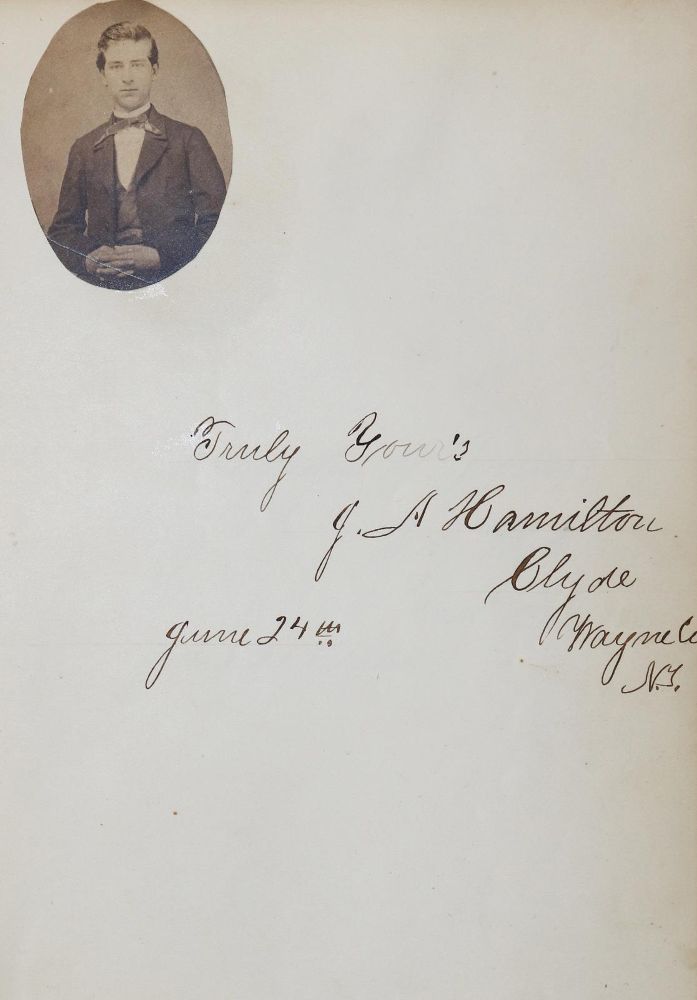 Truly Your's
J. A Hamilton
Clyde
June 24th Wayne Co
N.Y.